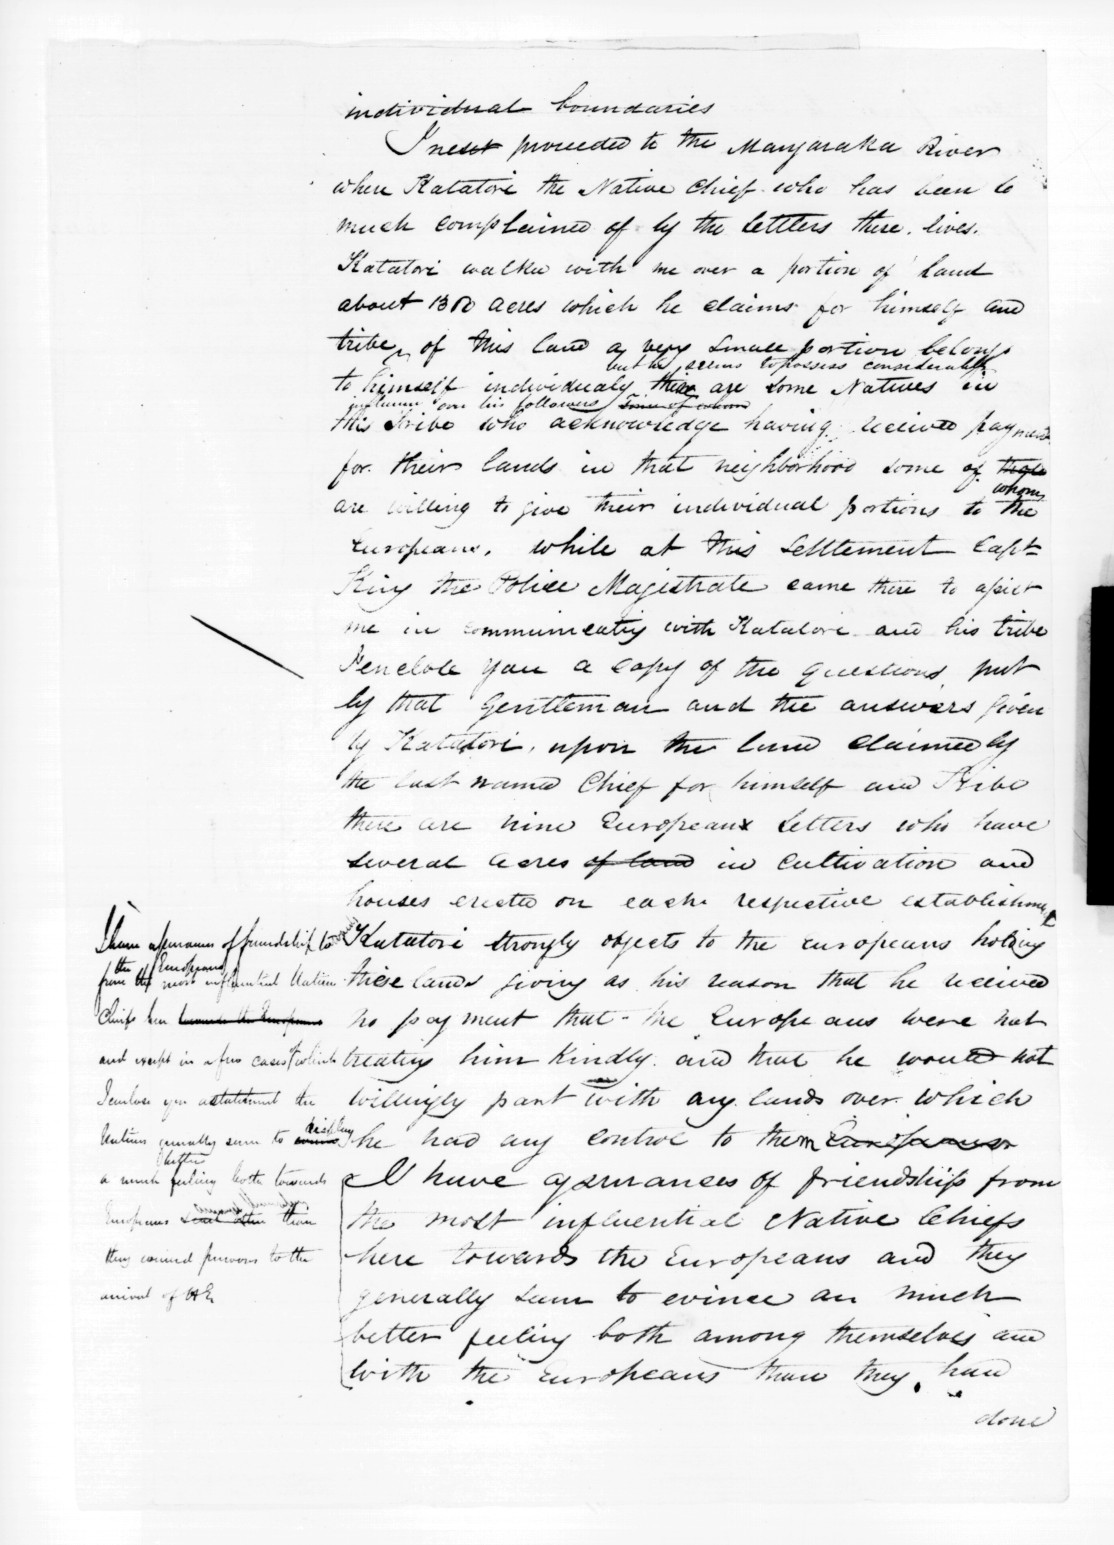 individual boundaries
I next proceeded to the Manganaka River
where Katatori the Native Chief who has been so
much complained of by the settlers there. lives.
Katatori walked with me over a portion of land
about 1300 acres which he claims for himself and
tribe, of this land a very small portion belongs
but he seems to possess considerable
to himself individualy there are some Natives in
influence over his followers some of whom
this tribe who acknowledge having received payment
for their lands in that neighborhood some of those
whom
are willing to give their individual portions to the
Europeans. while at this settlement Capt
King the Police Magistrate came there to assist
me in communicating with Katatori and his tribe
I enclose you a copy of the questions put
by that Gentleman and the answers given
by Katatori. upon the land claimed by
the last named Chief for himself and Tribe
there are nine Europeans settlers who have
several acres of land in cultivation and
houses erected on each respective establishment
Katatori strongly objects to the Europeans holding
these lands giving as his reason that he received
no payment that the Europeans were not
treating him kindly and that he would not
willingly part with any lands over which
he had any control to them Europeans
I have assurances of friendship from
the most influential Native Chiefs
here towards the Europeans and they
generally seem to evince an much
better feeling both among themselves and
with the Europeans than they had
done
I have assurances of friendship to
the Europeans
from the most influential Native
Chiefs here towards the Europeans
and except in a few cases of which
I enclose you a statement the
display
Natives generally seem to evince
better
a much feeling both towards
Europeans than
they evinced previous to the
arrival of HE